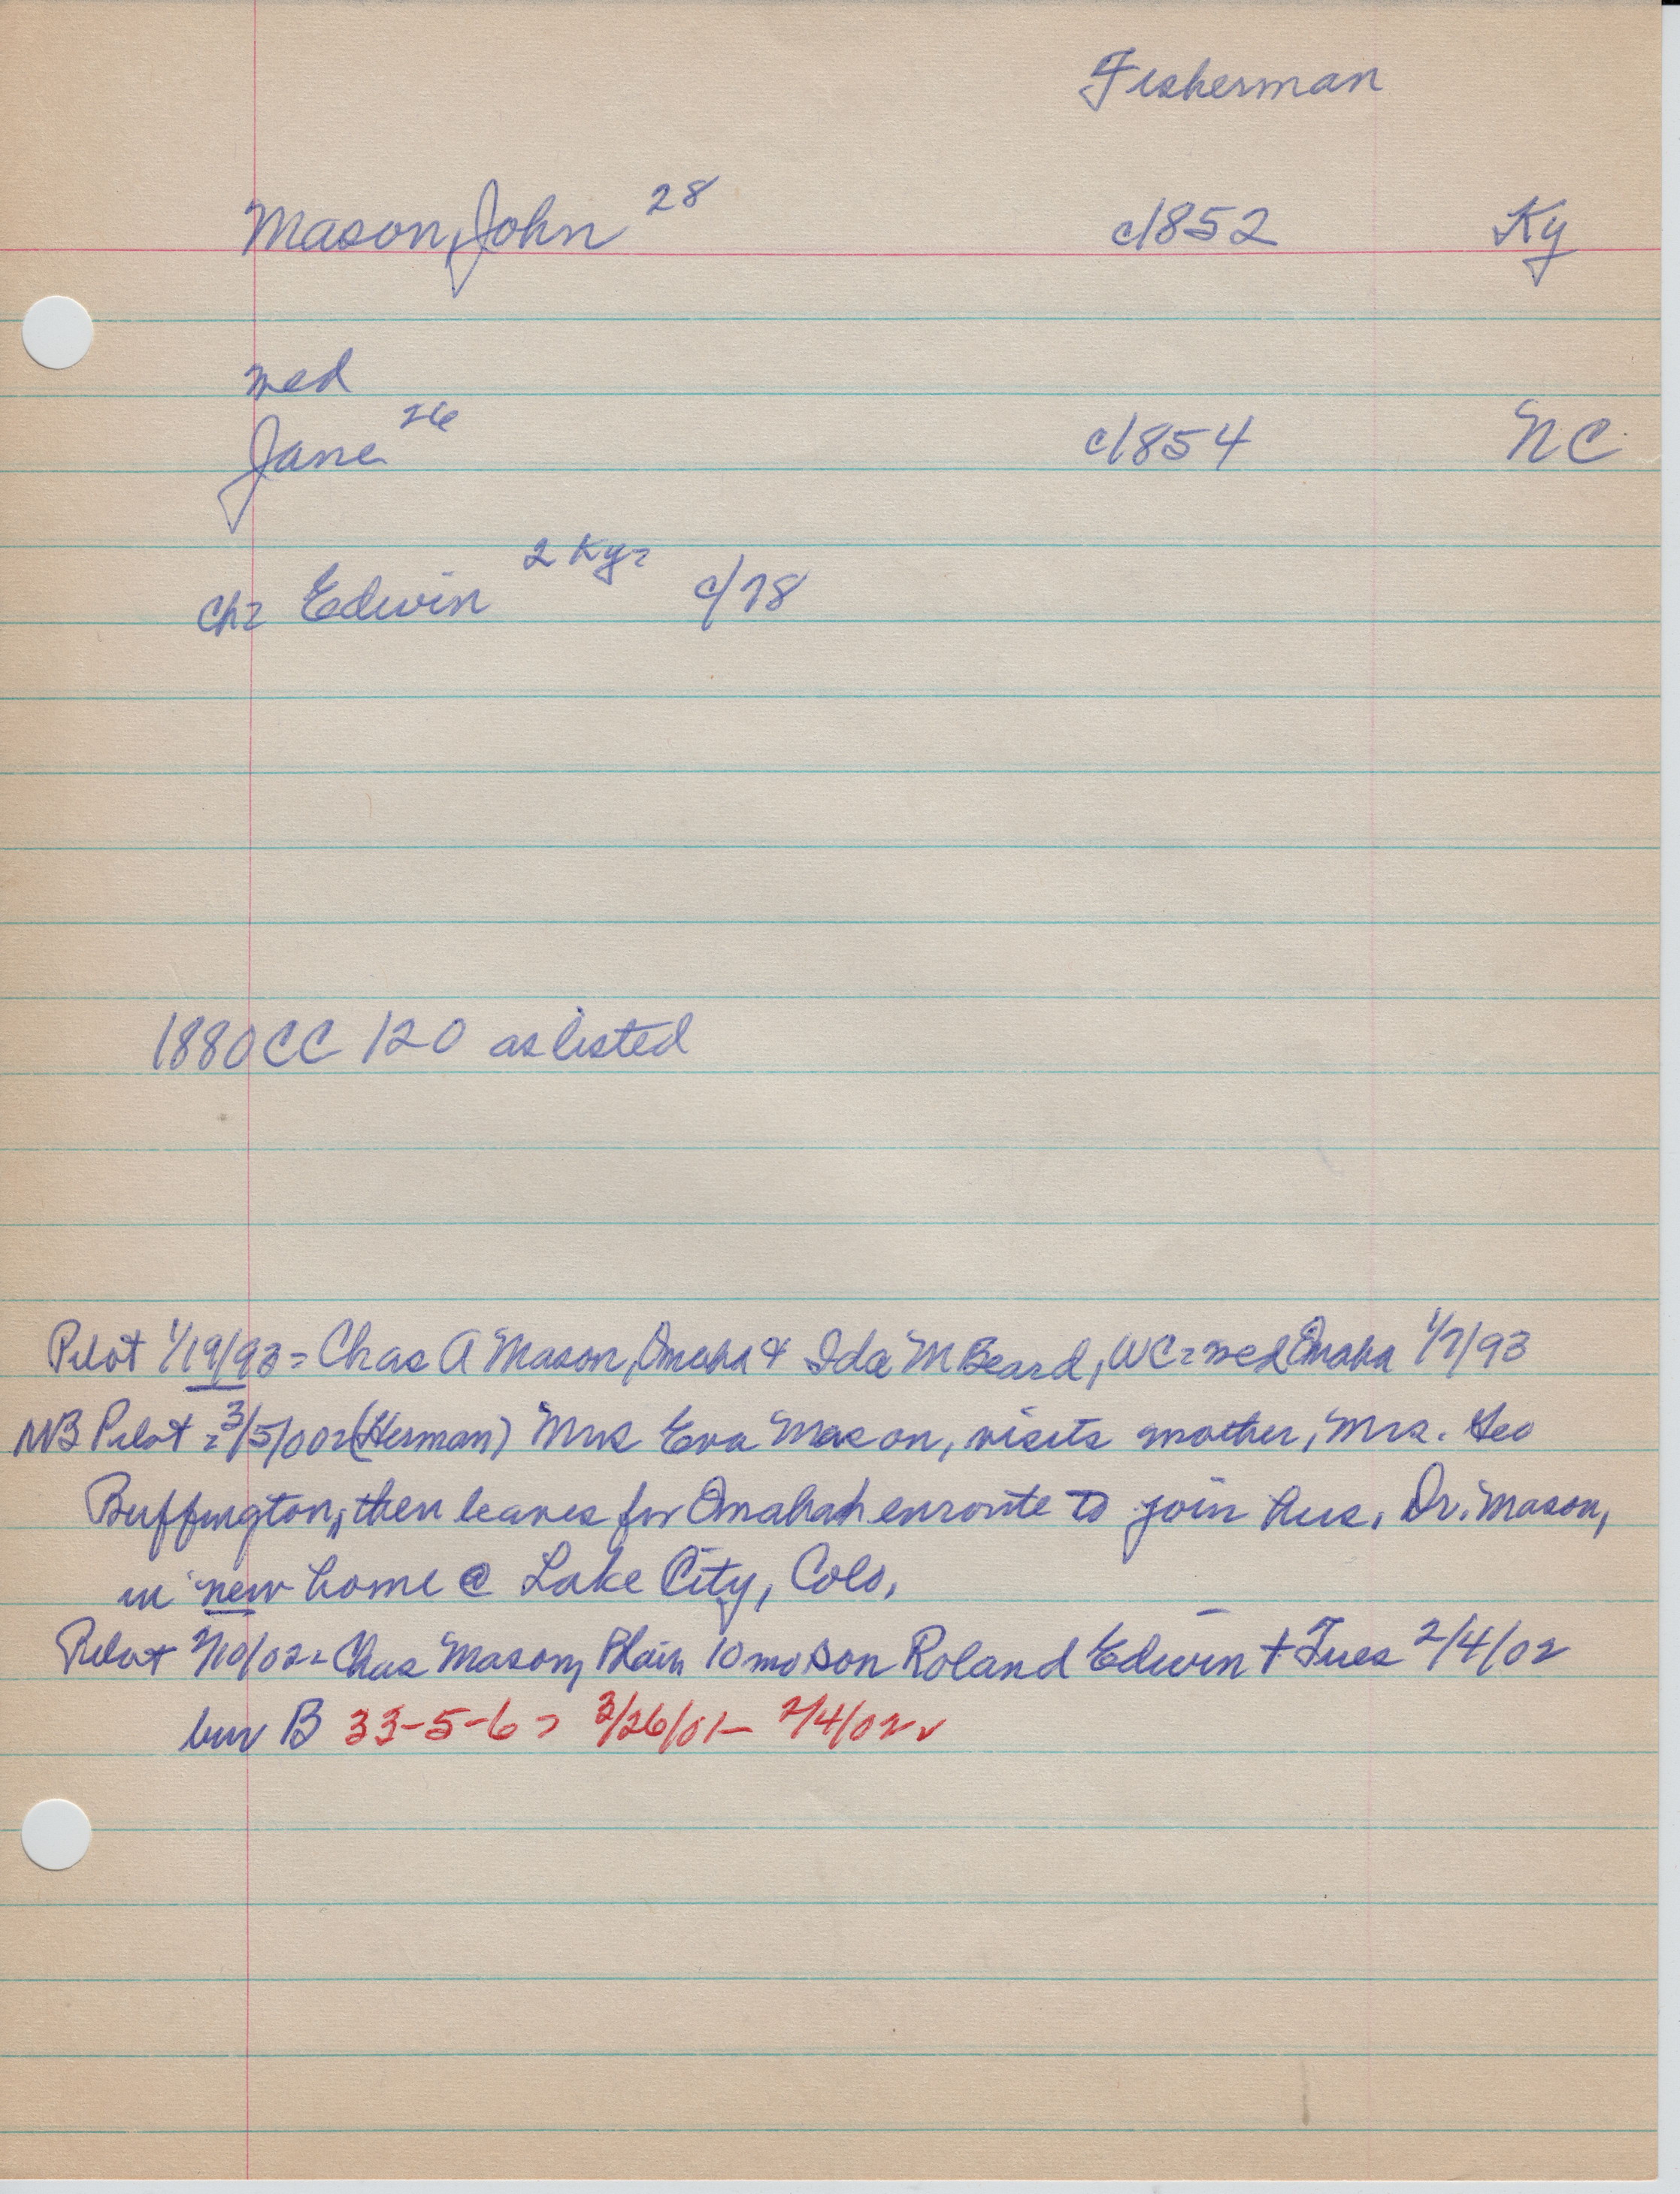 Fisherman
Mason, John 28 c1852 Ky
med
Jane 26 c1854 NC
ch= Edwin 2 Ky= c/78
1880 CC 120 as listed
Pilot 1/19/93 = Chas A Mason, Omaha & Ida M Beard, WC = med Omaha 1/7/93
NB Pilot = 3/5/00 = (Herman) Mrs Eva Mason, visits mother, Mrs. Geo
Buffington, then leaves for Omaha enroute to join hus, Dr. Mason,
in new home @ Lake City, Colo,
Pilot 2/10/02 = Chas Mason, Blair 10 mo son Roland Edwin + Tues 2/4/02
bur B 33-5-6 = 3/26/01 - 2/4/02 ✓